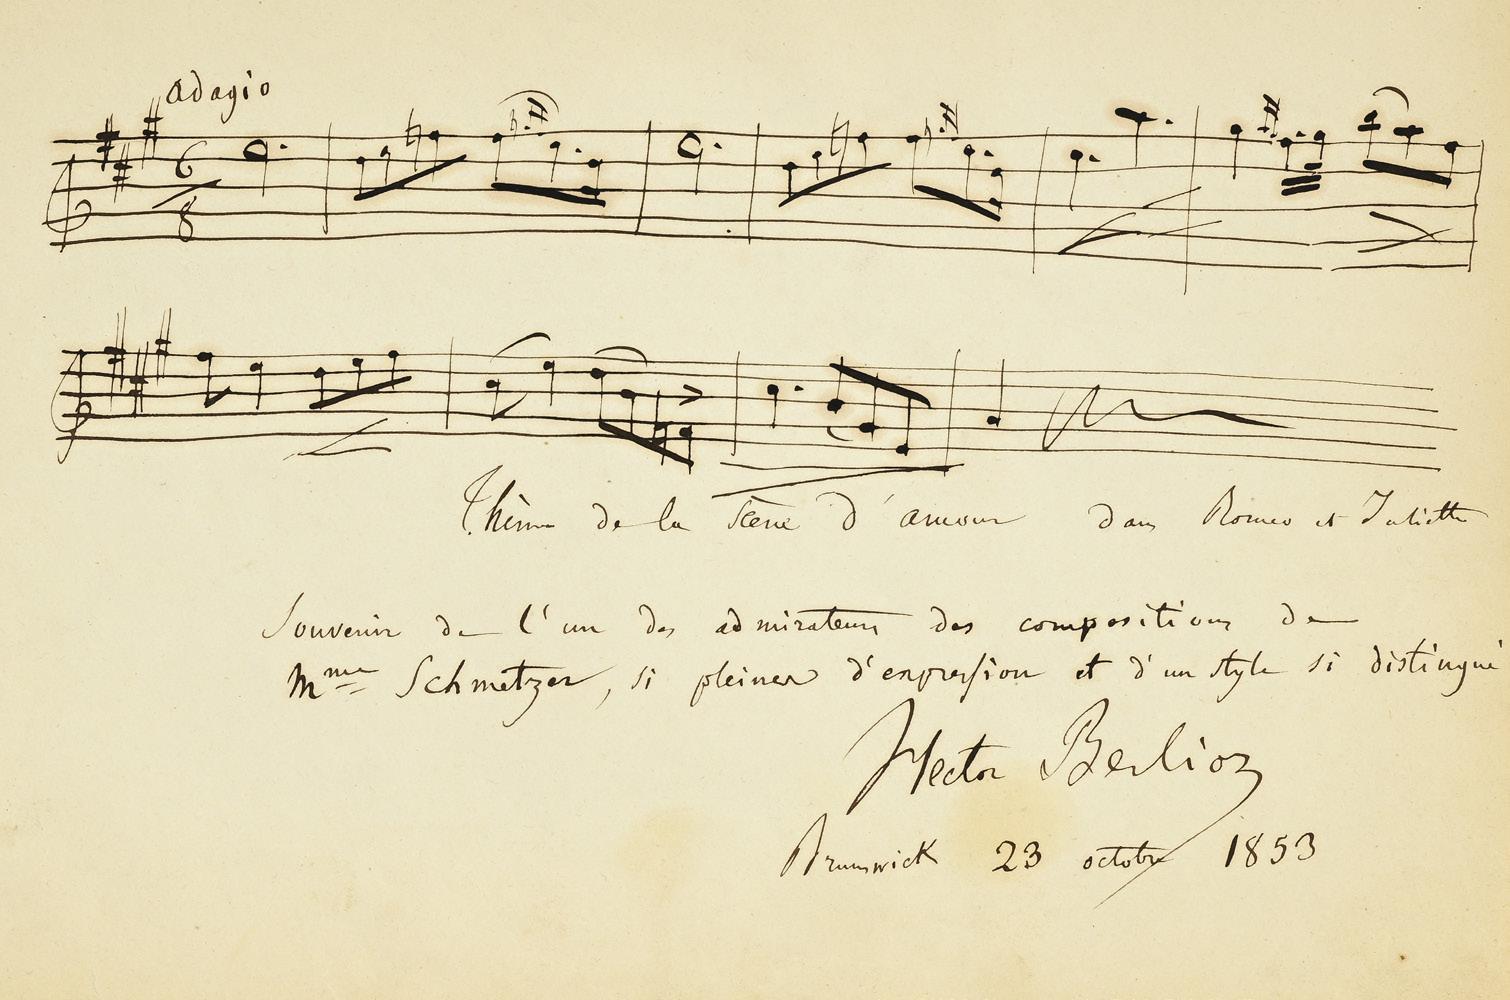 adagio
6
8
Thème de la Scène d'amour dans Romeo et Juliette
Souvenir de l'un des admirateurs des compositions de
Mme Schmetzer, si pleines d'expression et d'un style si distingué
Hector Berlioz
Brunswick 23 octobre 1853